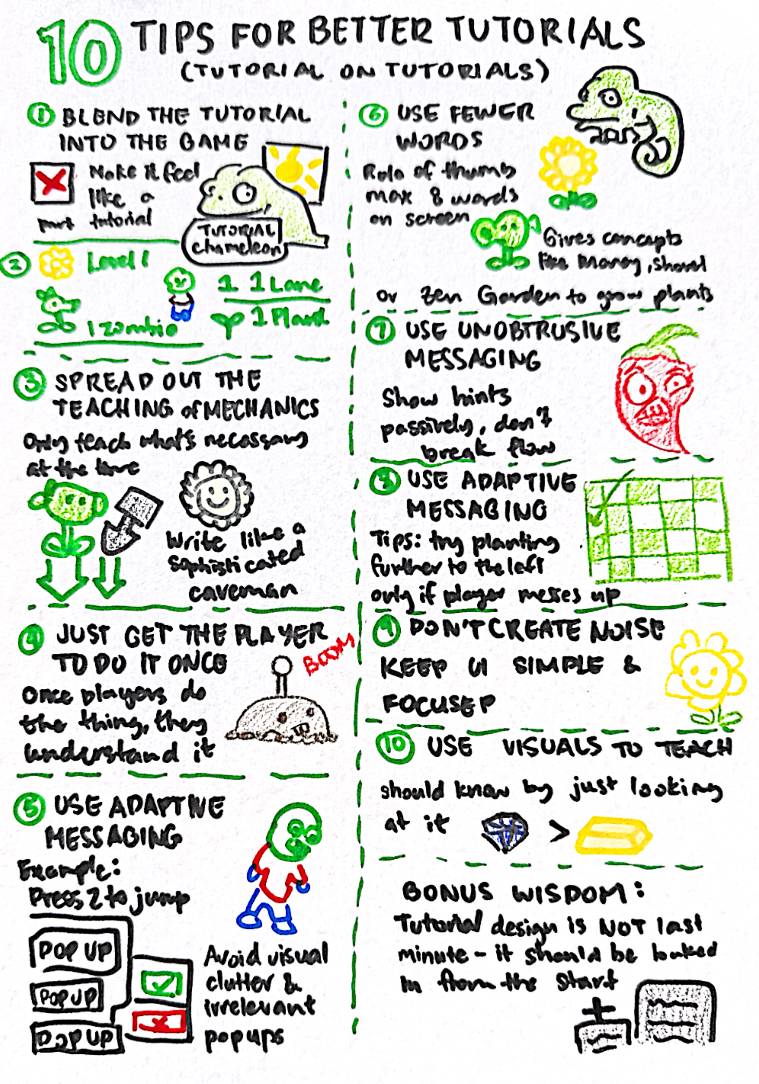 10 TIPS FOR BETTER TUTORIALS
(TUTORIAL ON TUTORIALS)
① BLEND THE TUTORIAL
INTO THE GAME
Make it feel
like a
part tutorial
TUTORIAL
Chameleon
② Level 1
1 1 Lane
1 Zombie
1 Plant
③ SPREAD OUT THE
TEACHING of MECHANICS
Only teach what's necessary
at the time
Write like a
sophisticated
caveman
④ JUST GET THE PLAYER
TO DO IT ONCE
BOOM
Once players do
the thing, they
understand it
⑤ USE ADAPTIVE
MESSAGING
Example:
Press Z to jump
POP UP
POP UP
POP UP
Avoid visual
clutter &
irrelevant
popups
⑥ USE FEWER
WORDS
Rule of thumb
max 8 words
on screen
Gives concepts
like money, shovel
or Zen Garden to grow plants
⑦ USE UNOBTRUSIVE
MESSAGING
Show hints
passively, don't
break flow
⑧ USE ADAPTIVE
MESSAGING
Tips: try planting
further to the left
only if player messes up
⑨ DON'T CREATE NOISE
KEEP UI SIMPLE &
FOCUSED
⑩ USE VISUALS TO TEACH
should know by just looking
at it >
BONUS WISDOM:
Tutorial design is NOT last
minute - it should be baked
in from the start